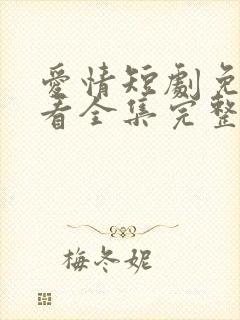 爱情短劇免
看全集完整
梅冬妮